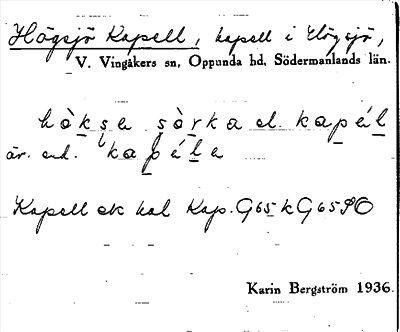 Högsjö Kapell, kapell i Högsjö,
V. Vingåkers sn, Oppunda hd, Södermanlands län.
hòkse sòrka el. kapél
är. end. kapéle
Kapell ek kal Kap. G65 k G65 SO
Karin Bergström 1936.